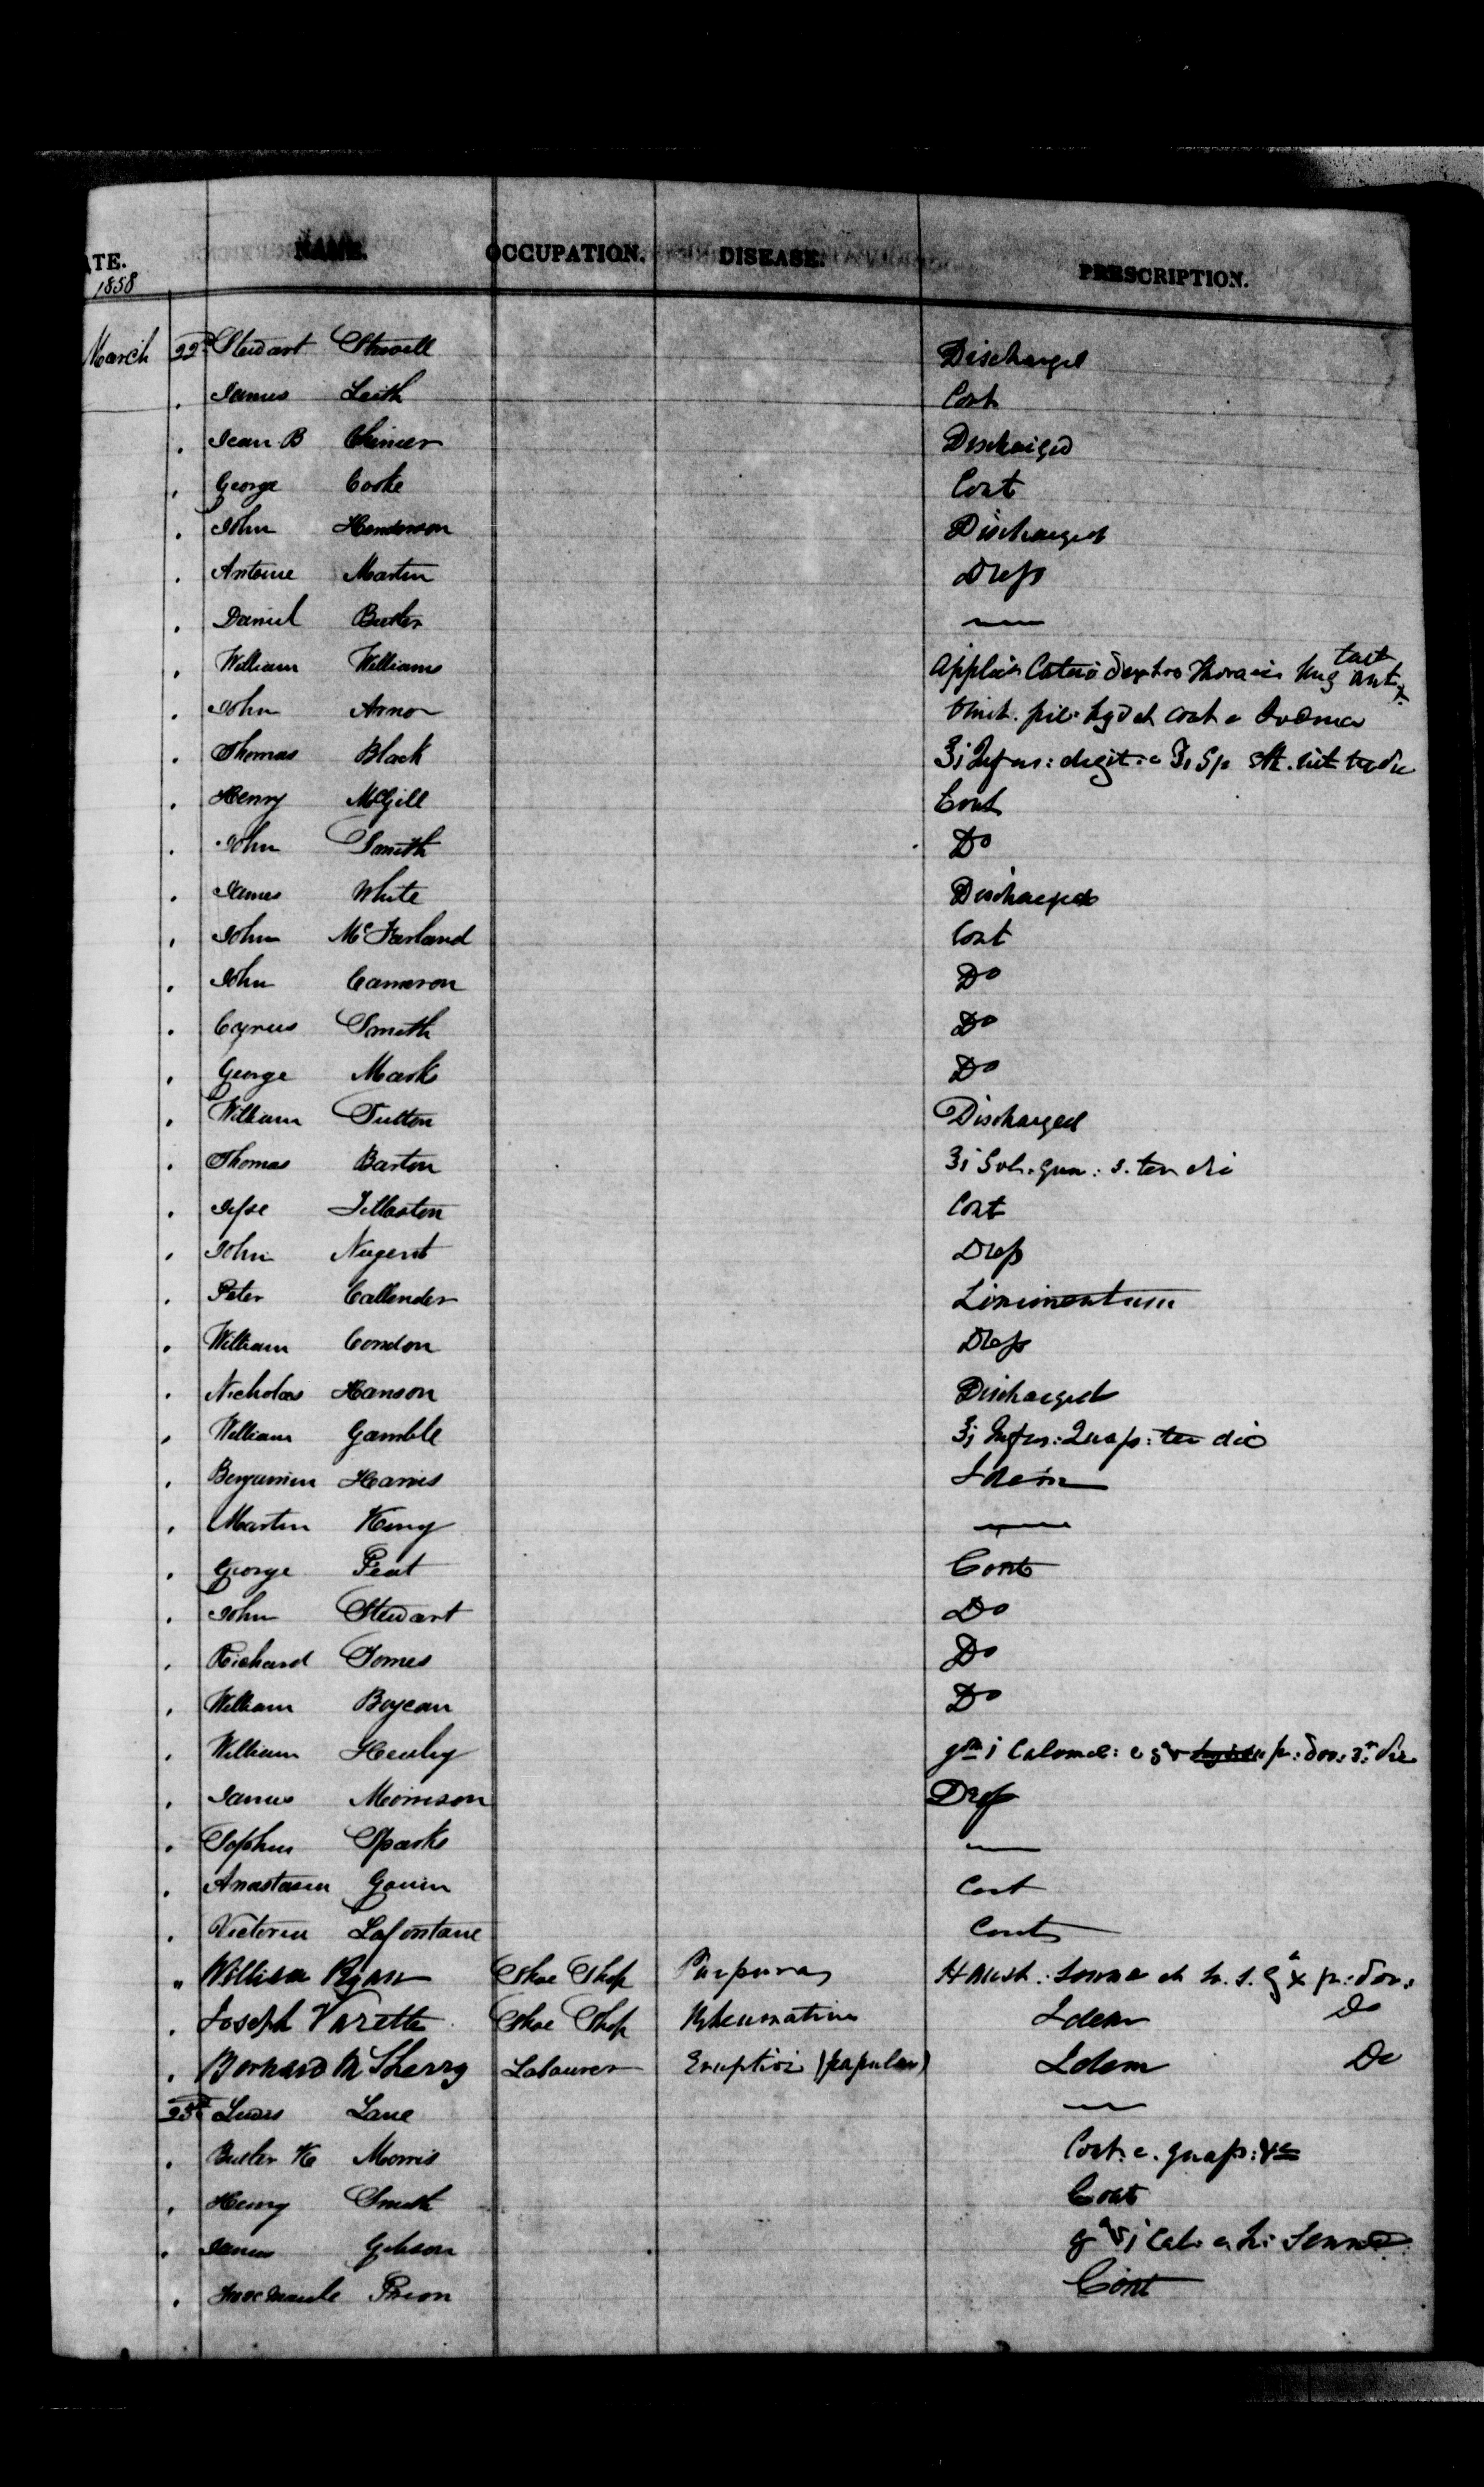 ATE. NAME. OCCUPATION. DISEASE. PRESCRIPTION.
1858
March 22d Stewart Discharged
. James Leith Cont
. Jean B Discharged
. George Cooke Cont
. John Henderson Discharged
. Antoine Martin Dress
. Daniel Butler —
. William Williams Applic Lateri dextro Thoracis Ung tart ant
. John Armor Omit. pil. hyd et cont
. Thomas Black ʒi Infus: digit: c ʒi Sp nit ter die
. Henry McGill Cont
. John Smith Do
. James White Discharged
. John McFarland Cont
. John Cameron Do
. Cyrus Smith Do
. George Marks Do
. William Sutton Discharged
. Thomas Barton ʒi Sol. ter die
. Jesse Tillaston Cont
. John Nugent Dress
. Peter Callender Linimentum
. William Condon Dress
. Nicholas Hanson Discharged
. William Gamble ʒi Infus: Quass: ter die
. Benjamin Harris Idem
. Martin King —
. George Peat Cont
. John Stewart Do
. Richard Jomes Do
. William Boycan Do
. William Healey i Calomel:
. James Morrison Dress
. Sophus Sparks —
. Anastasia Cont
. Victoria Lafontane Cont
" William Ryan Shoe Shop Purpura Haust: Sennae
. Joseph Varette Shoe Shop Rheumatism Idem Do
. Bernard McSherry Labourer Eruption (papular) Idem Do
23d Lewis Lane —
. Butler K Morris Cont. c. quass: &c
. Henry Smith Cont
. James Gibson Cal. Senna
. Prion Cont